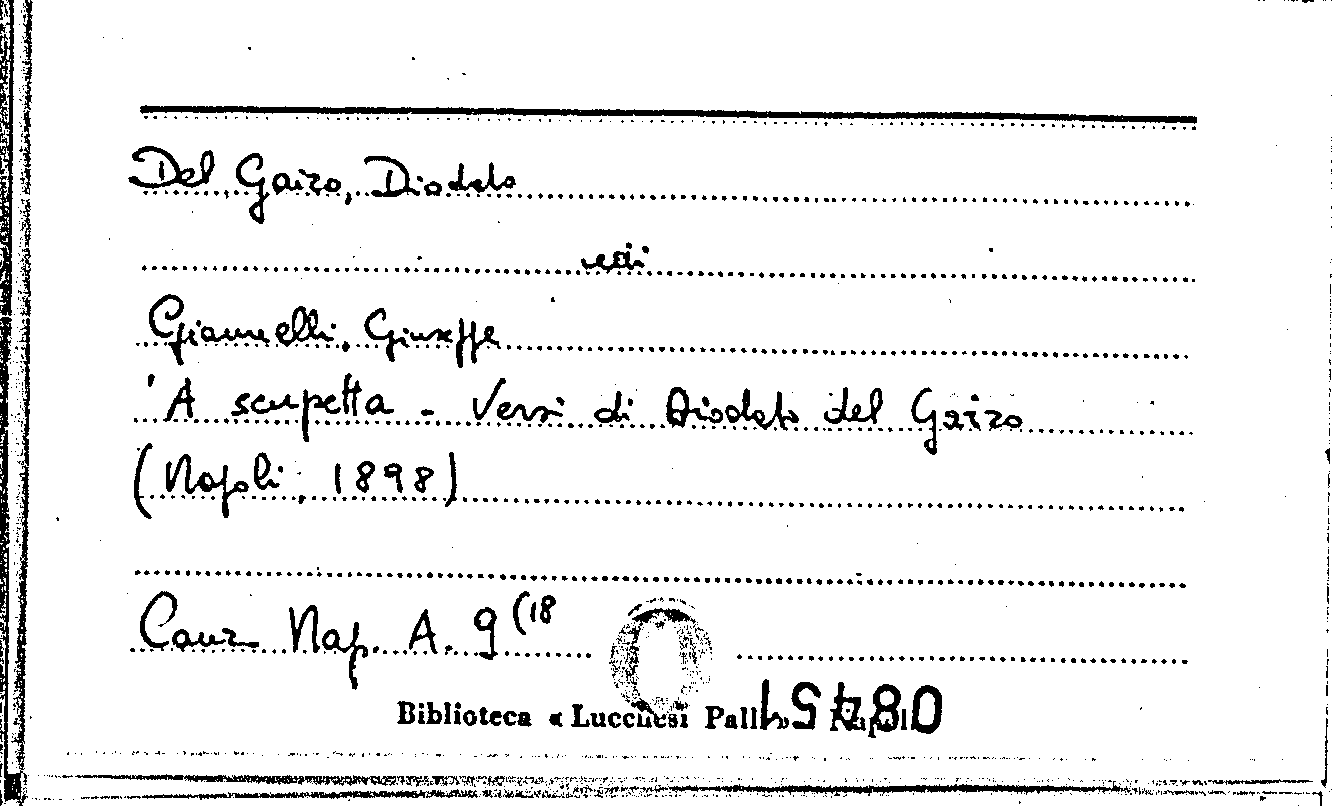 Del Gaizo, Diodato
vedi
Giannelli, Giuseppe
'A scupetta - Versi di Diodato del Gaizo
(Napoli, 1898)
Canz. Nap. A. 9 (18
Biblioteca « Lucchesi Palli » Napoli